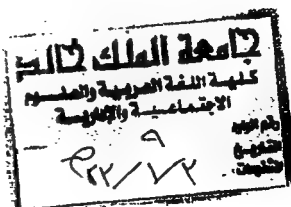 جامعة الملك خالد
كلية اللغة العربية والعلوم
الاجتماعية والإدارية
رقم الوارد
٩
التاريخ
المشفوعات